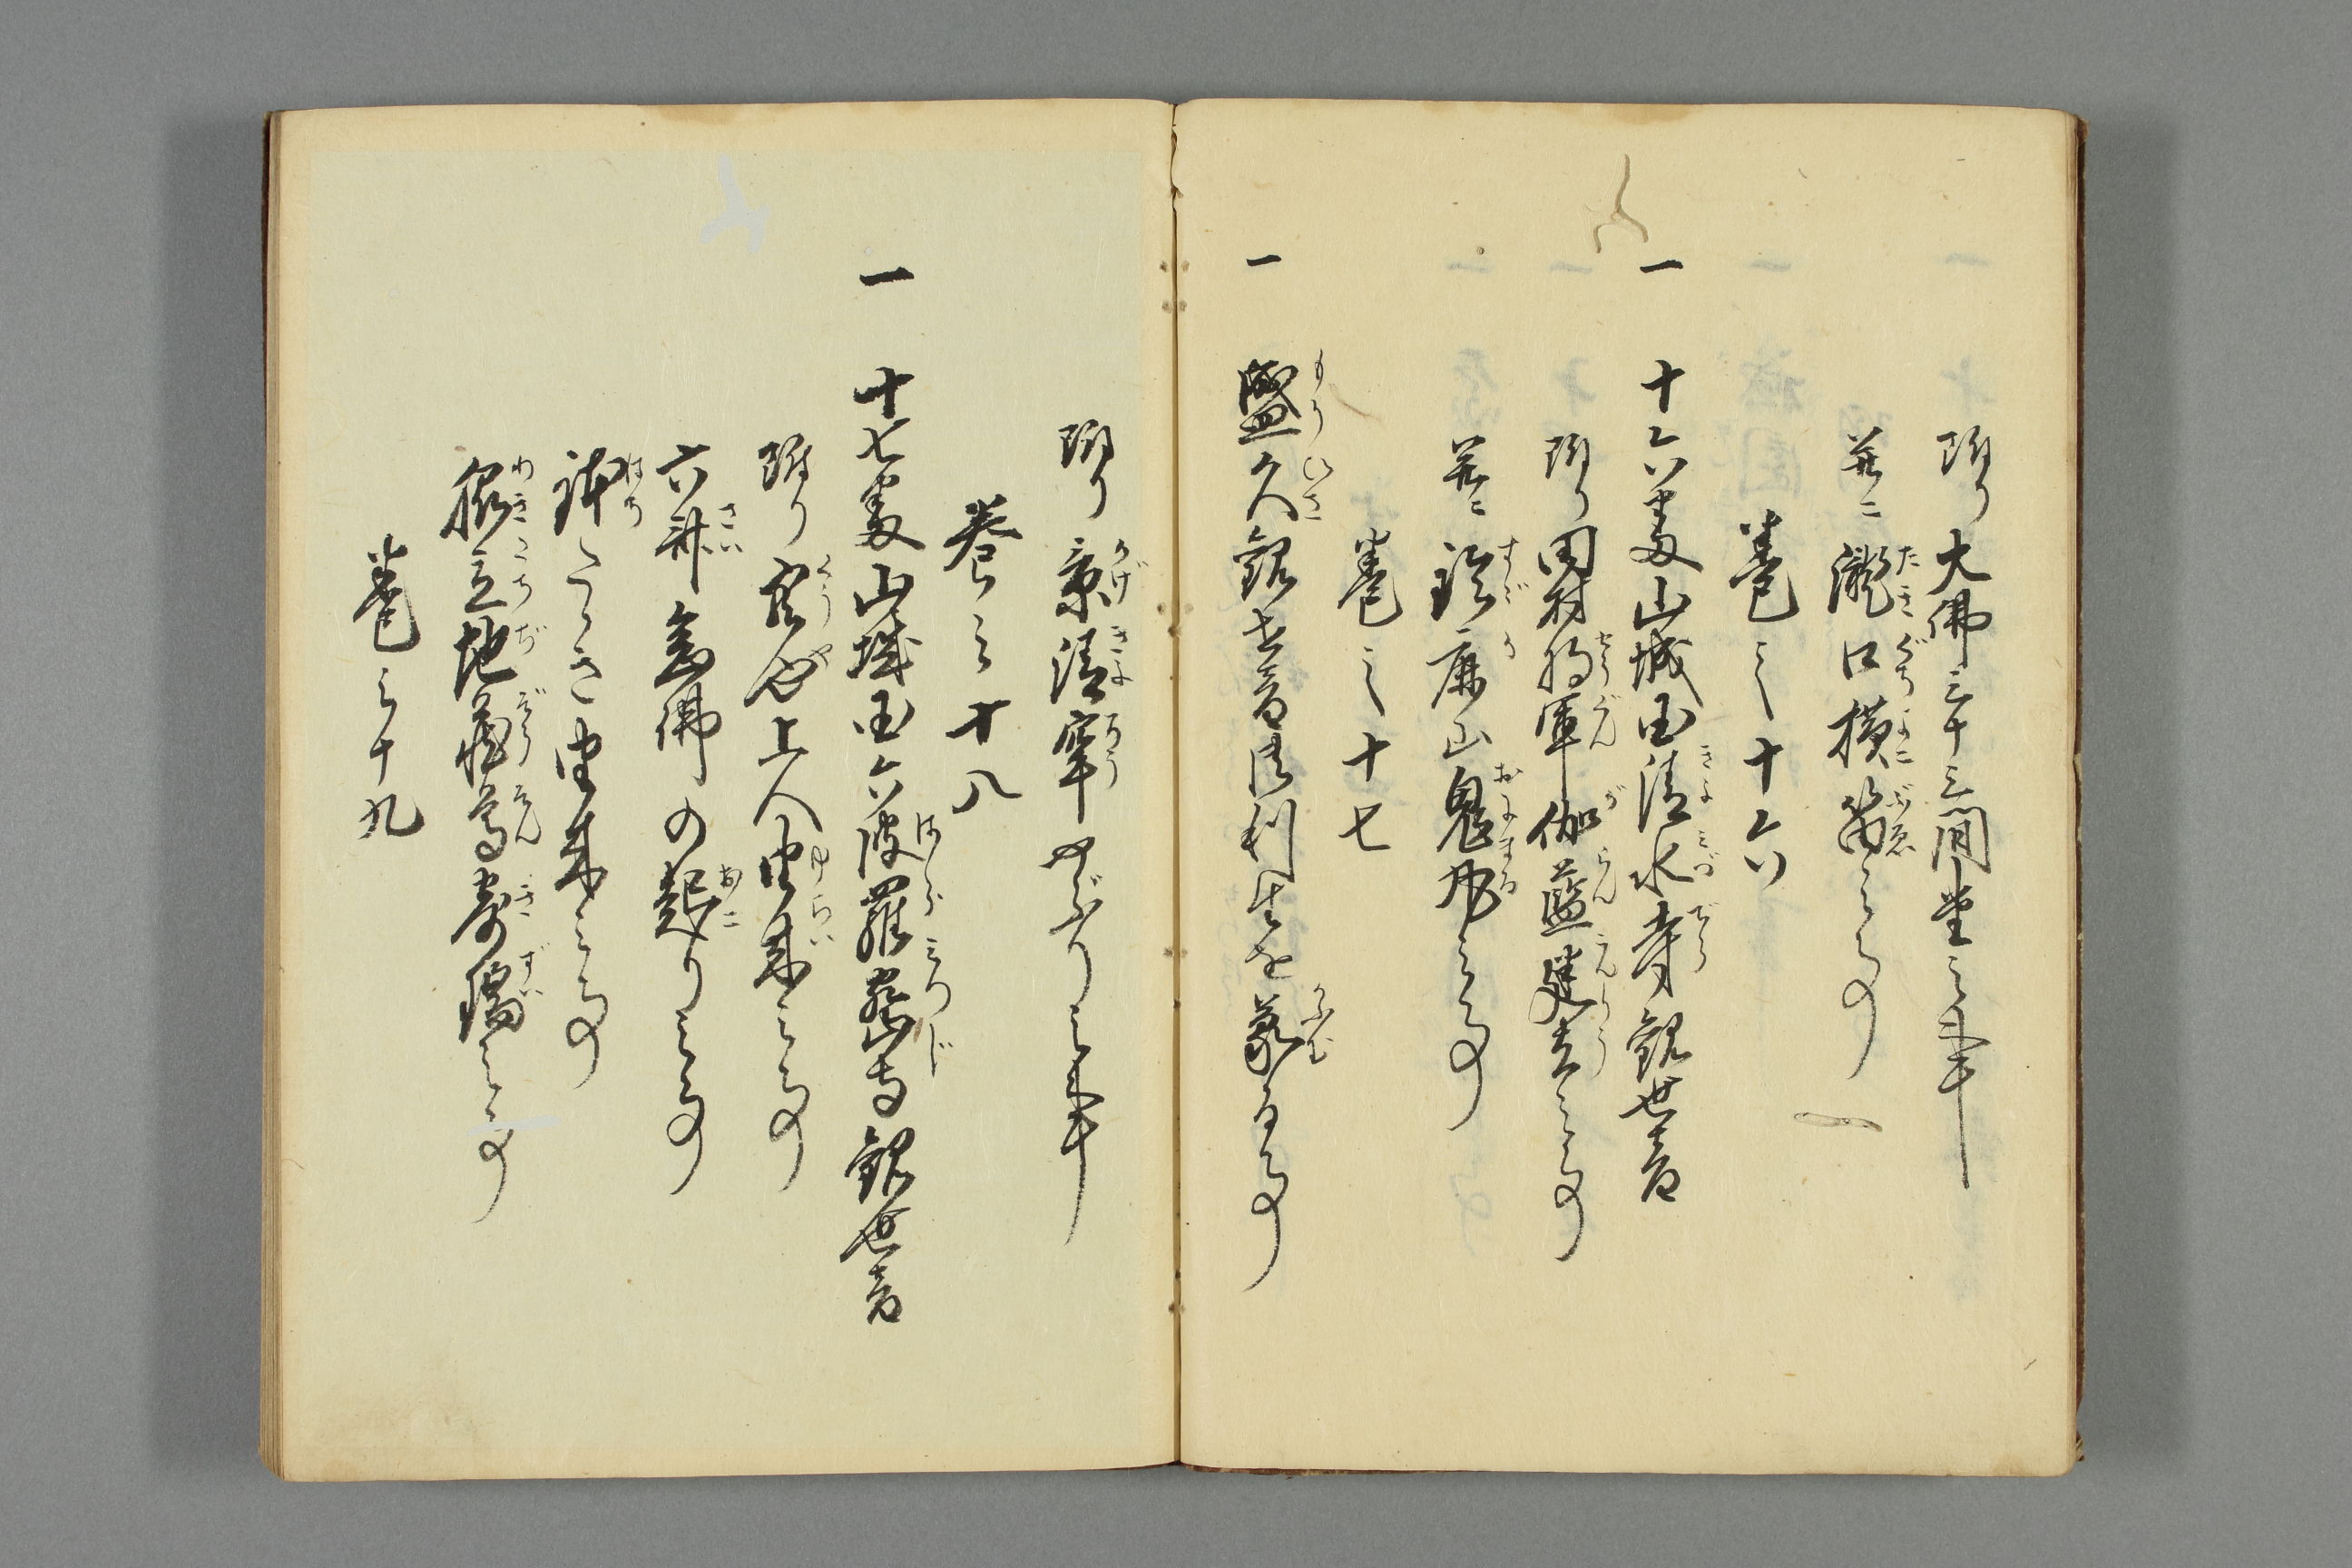 附り大佛三十三間堂之事
並ニ瀧口横笛之事
巻之十六
一 十六番山城国清水寺観世音
附り田村将軍伽藍建立之事
並ニ鈴鹿山鬼丸之事
巻之十七
一 盛久観世音御利生を蒙る事
附り景清牢やぶり之事
巻之十八
一 十七番山城国六波羅密寺観世音
附り空也上人由来之事
六斎念佛の起り之事
鉢たゝき由来之事
腋立地蔵尊奇瑞之事
巻之十九